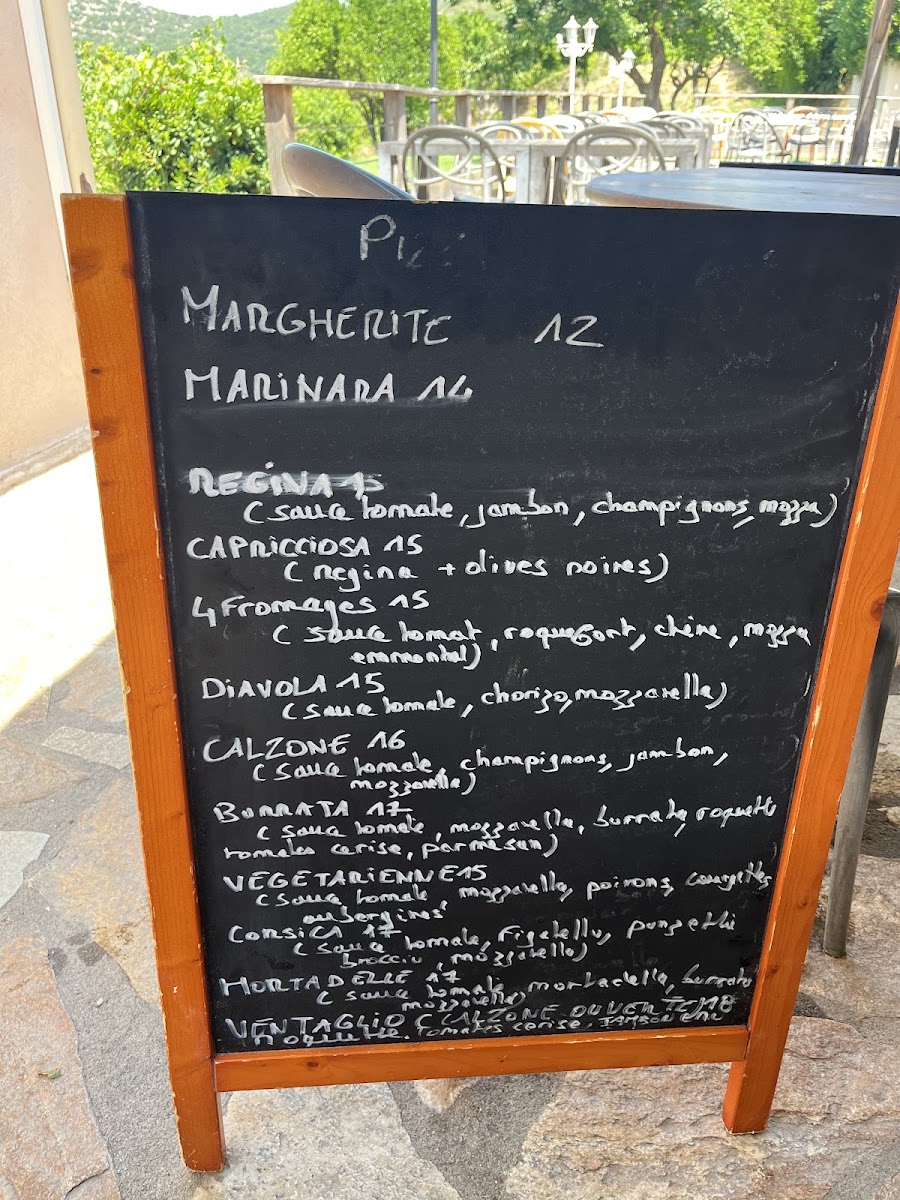 Pizz
MARGHERITE 12
MARINARA 14
REGINA 15
(sauce tomate, jambon, champignons, mozza)
CAPRICCIOSA 15
(regina + olives noires)
4 Fromages 15
(sauce tomat, roquefort, chèvre, mozza
emmental)
DIAVOLA 15
(sauce tomate, chorizo, mozzarella)
CALZONE 16
(sauce tomate, champignons, jambon,
mozzarella)
BURRATA 17
(sauce tomate, mozzarella, burrata, roquette
tomates cerise, parmesan)
VEGETARIENNE 15
(sauce tomate, mozzarella, poivrons, courgettes
aubergines
CORSICA 17
(sauce tomate, Figatellu, panzetta
Brocciu, mozzarella)
MORTADELLE 17
(sauce tomate, mortadella, burrata
mozzarella)
VENTAGLIO CALZONE OUVERTE 18
roquette, tomates cerise, JAMBON CRU